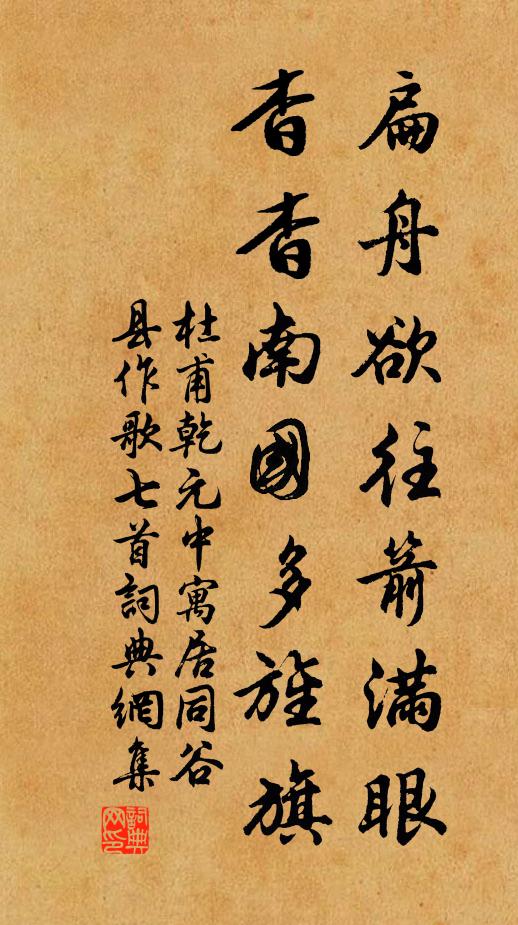 扁舟欲往箭滿眼
杳杳南國多旌旗
杜甫乾元中寓居同谷
县作歌七首詞典網集
詞典网印